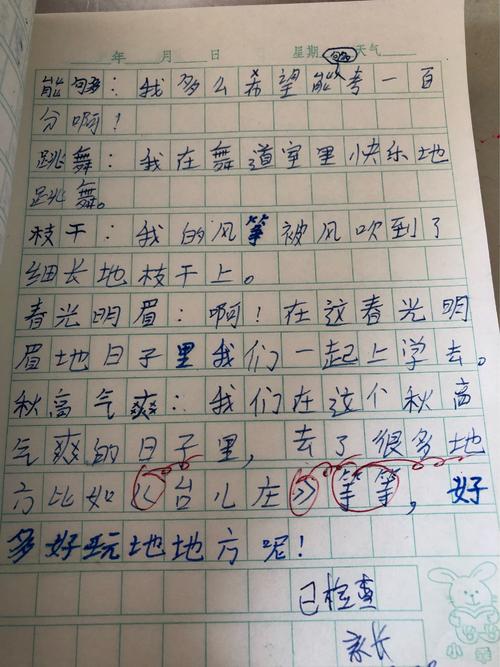 年 月 日 星期 天气
能够：我多么希望能够考一百
分啊！
跳舞：我在舞道室里快乐地
跳舞。
枝干：我的风筝被风吹到了
细长地枝干上。
春光明眉：啊！在这春光明
眉地日子里我们一起上学去。
秋高气爽：我们在这个秋高
气爽的日子里，去了很多地
方比如《台儿庄》等等，好
多好玩地地方呢！
已检查
家长